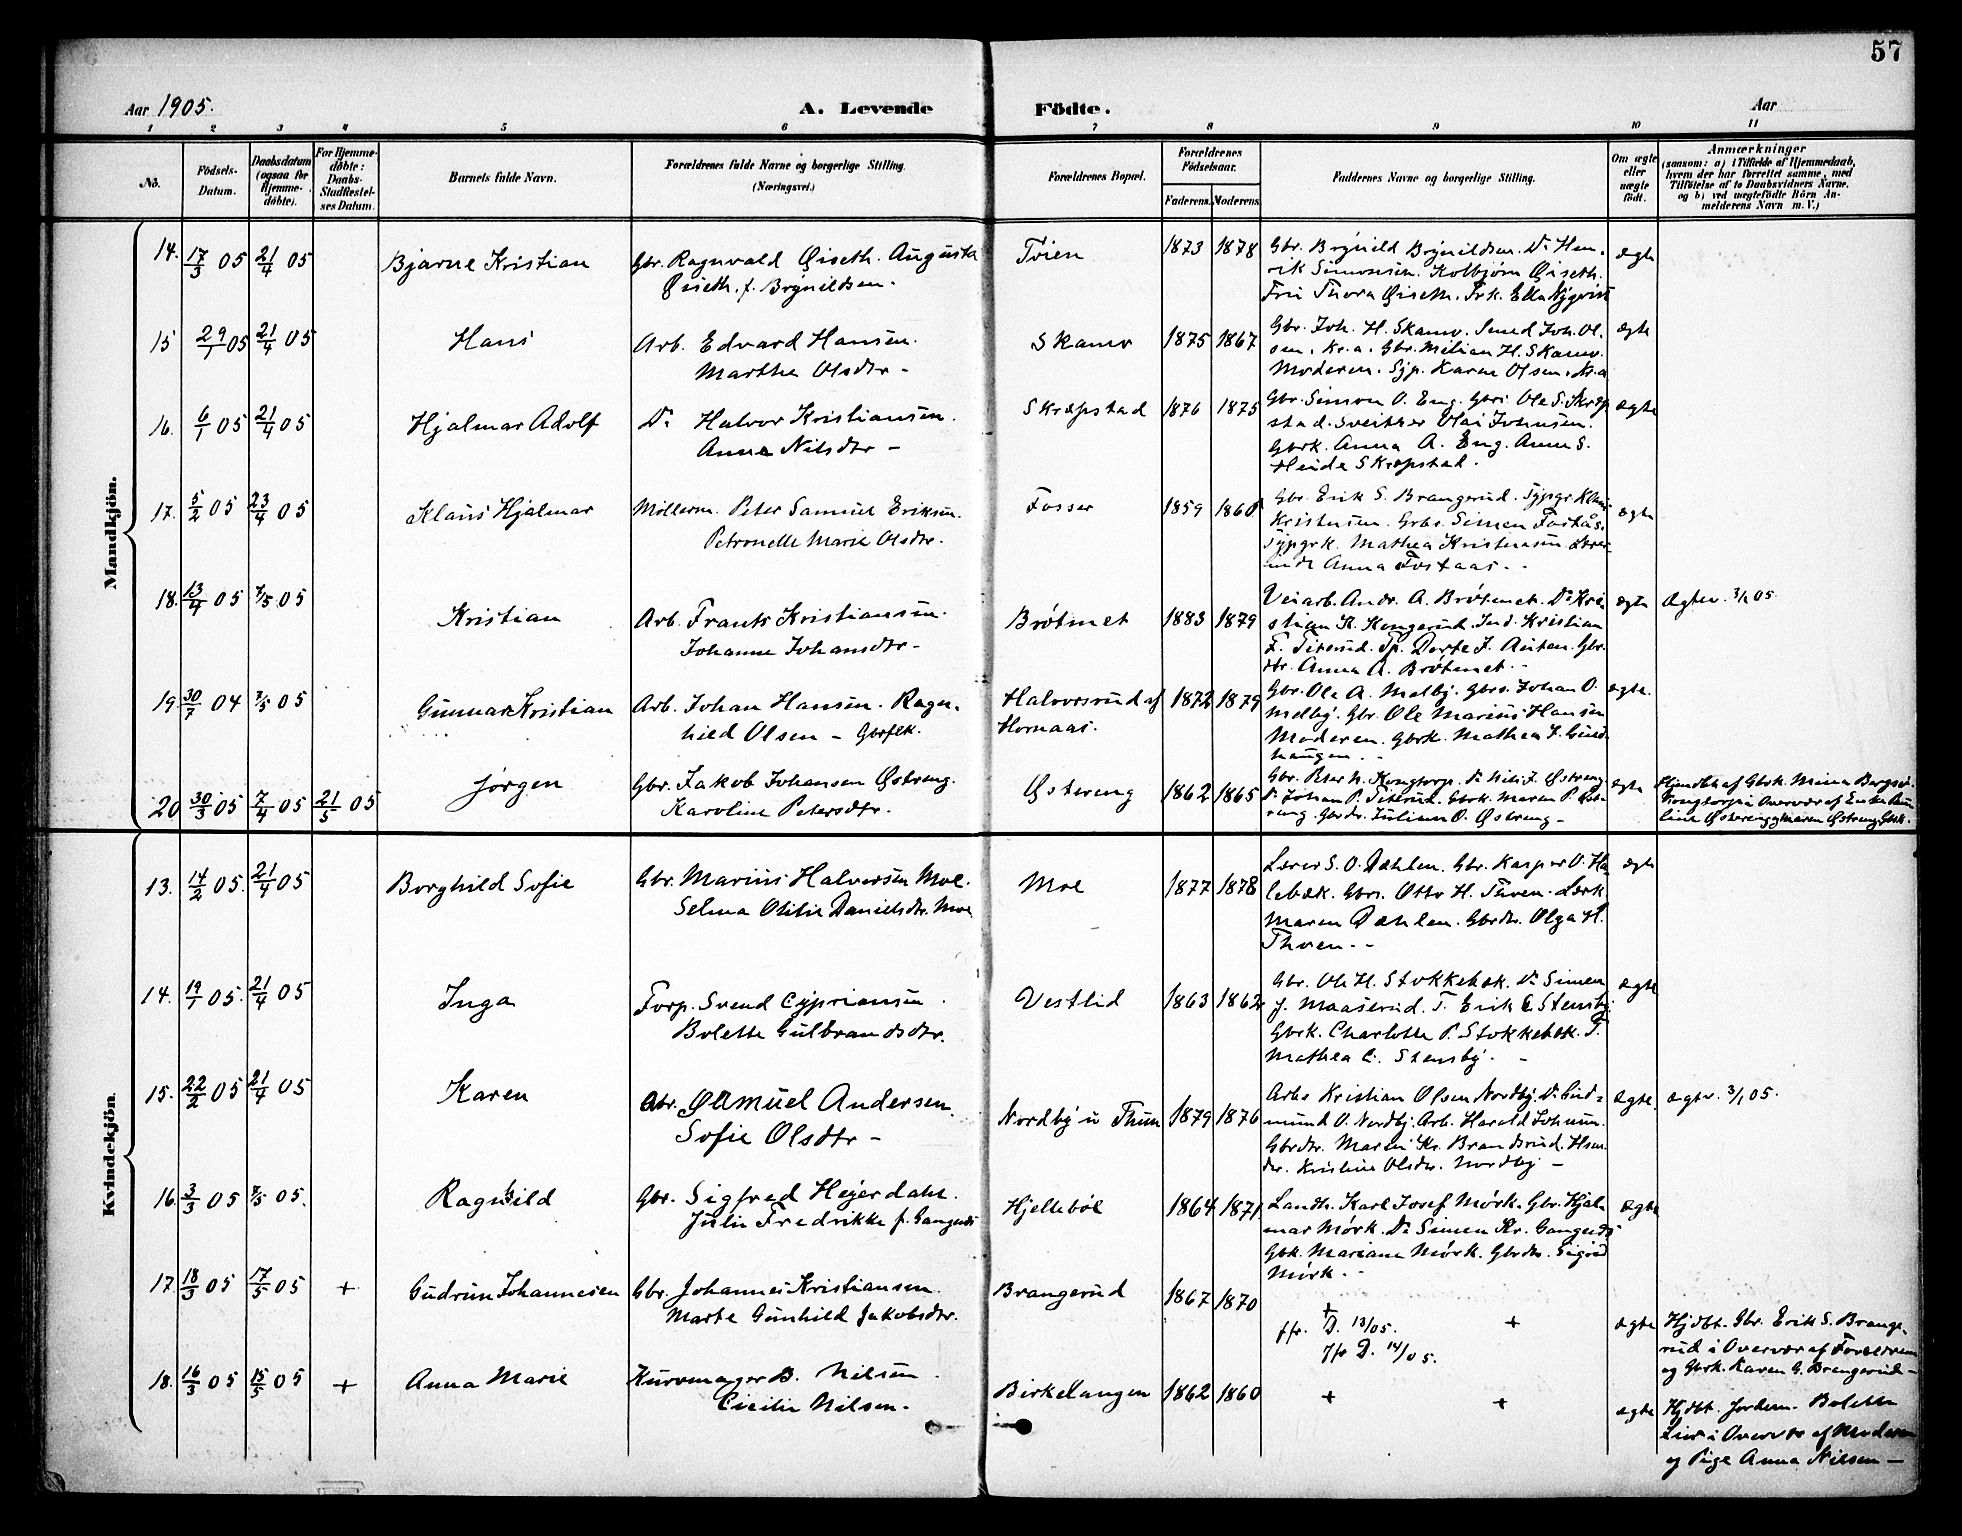 57
Aar 1905.
A. Levende Födte.
Aar
1 2 3 4 5 6 7 8 9 10 11
No.
Födsels-Datum.
Daabsdatum (ogsaa for Hjemme-döbte).
For Hjemme-döbte: Daabs-Stadfæstel-ses Datum.
Barnets fulde Navn.
Forældrenes fulde Navne og borgerlige Stilling. (Næringsvei.)
Forældrenes Bopæl.
Forældrenes Födselsaar.
Faderens. Moderens.
Faddernes Navne og borgerlige Stilling.
Om ægte eller uægte födt.
Anmærkninger
(saasom: a) i Tilfælde af Hjemmedaab,
hvem der har forrettet samme, med
Tilföielse af to Daabsvidners Navne.
og b) ved uægtefödte Börn An-
melderens Navn m. V.)
Mandkjön.
14. 17/3 05 21/4 05 Bjarne Kristian
Gbr. Ragnvald Øiseth. Augusta
Øiseth. f. Brynildsen.
Toien 1873 1878
Gbr. Brynild Brynildsen. Do Hen-
rik Simonsen. Kolbjørn Øiseth.
Fru Thora Øiseth. Frk. Ella Nyqvist
ægte
15 29/1 05 21/4 05 Hans
Arb. Edvard Hansen.
Marthe Olsdtr -
Skamo 1875 1867
Gbr. Joh. H. Skamo. Smed Joh. Ol-
sen. Kr.a. Gbr. Milian H. Skamo.
Moderen. Syp. Karne Olsen. Kr.a
ægte
16. 6/1 05 21/4 05 Hjalmar Adolf
Do Halvor Kristiansen.
Anne Nilsdtr -
Skræpstad 1876 1875
Gbr. Simon O. Eng. Gbrs Ole S. Skræp
stad. Sveitser Olai Johnsen.
Gbrk. Anna A. Eng. Anne S.
Skræpstad.
ægte
17. 5/2 05 23/4 05 Klaus Hjalmar
Møllerm. Peter Samuel Eriksen.
Petronelle Marie Olsdtr.
Fosser 1859 1860
Gbr. Erik S. Brangerud. Typgr
Kristensen. Grbr. Simen Fostås.
Typgrk. Mathea Kristensen. Lærer-
inde Anna Fostaas. -
ægte
18. 13/4 05 7/5 05 Kristian
Arb. Frants Kristiansen.
Johanne Johansdtr -
Brøtmet 1883 1879
Veiarb. Andr. A. Brøtmet. Do Kri-
stian K. Kongerud. Ind. Kristian
F. Titerud. Tp. Dorte J. Austen. Gbr.
dtr. Anna A. Brøtmet. -
ægte Ægtev. 3/1 05.
19. 30/7 04 7/5 05 Gunnar Kristian
Arb. Johan Hansen. Ragn-
hild Olsen - Gbrflk.
Halvorsrud af
Hornaas.
1872 1879
Gbr. Ole A. Melby. Gbrs. Johan O.
Melby. Gbr. Ole Marius Hansen
Moderen. Gbrk. Mathea J. Gund-
haugen.
ægte.
20 30/3 05 7/4 05 21/5 05 Jørgen
Gbr. Jakob Johansen Østreng.
Karoline Petersdtr.
Østereng 1862 1865
Gbr. Peter N. Kongtorp. Do Nils J. Østreng
Do Johan P. Titerud. Gbrk. Maren P. Øst-
reng. Gbrdtr. Juliane O. Østreng -
ægte
Hjmdbt af Gbrk. Mina
Kongtorp i Overvær af Enke
line Østereng og Maren Østreng Gbrk.
Kvindekjön.
13. 14/2 05. 21/4 05 Borghild Sofie
Gbr. Marius Halvorsen Moe.
Selma Otilie Danielsdtr. Moe
Moe 1877 1878
Lærer S. O. Dæhlen. Gbr. Kasper O. Ha
lebæk. Gbrs. Otto H. Thoen. Lærk
Maren Dæhlen. Gbrdtr. Olga H.
Thoen. -
ægte
14. 19/1 05. 21/4 05 Inga
Forp. Svend Cyprianson.
Bolette Gulbrandsdtr.
Vestlid 1863 1862
Gbr. Ole H. Stokkebæk. Do Simen
J. Maaserud. T. Erik C. Stensby
Gbrk. Charlotte P. Stokkebæk. T.
Mathea C. Stensby. -
ægte
15. 22/2 05 21/4 05 Karen
Gbr. Samuel Andersen.
Sofie Olsdtr -
Nordby u Thun 1879 1876
Arbs Kristian Olsen Nordby. Do Gud-
mund O. Nordby. Arb. Harald Johnsen.
Gbrdtr. Maren Kr. Brandsrud. Hsm.
dtr. Kristine Olsdtr. Nordby -
ægte. ægtv. 3/1 05.
16. 3/3 05 7/5 05. Ragnhild
Gbr. Sigfred Heyerdahl.
Julie Fredrikke f. Gangnæs
Hjellebøl 1864 1871
Landh. Karl Josef Mørk. Gbr. Hjal-
mar Mørk. Do Simen Kr. Gangnæs
Gbk. Mariane Mørk. Gbrdtr. Sigrid
Mørk. -
Ægte
17. 18/3 05 17/5 05 + Gudrun Johannesen
Gbr. Johannes Kristiansen.
Marte Gunhild Jakobsdtr.
Brangerud 1867 1870
+ +
ffr. D. 13/05.
Jfr D. 14/05.
ægte
Hjdbt. Gbr. Erik S. Brange-
rud i Overvær af Forældrene
og Gbrk. Karen G. Brangerud -
18. 16/3 05 15/5 05 + Anna Marie
Kurvmager B. Nilsen.
Cicilie Nilsen -
Birkelangen 1862 1860
+ +
ægte
Hjdbt. Jordem. Bolette
Lier i Overvær af Moderen
og Pige Anna Nilsen -